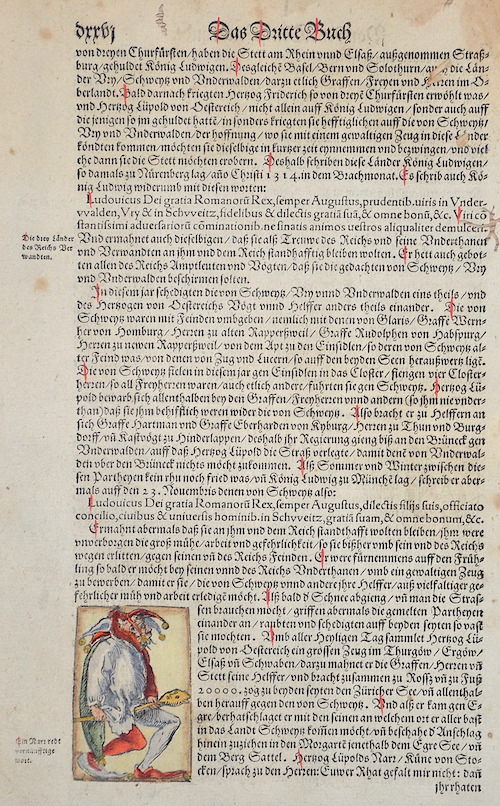 dxxvj
Das Dritte Buch
von dreyen Churfürsten/haben die Stett am Rhein vnnd Elsaß/außgenommen Straß-
burg/gehuldet König Ludwigen. Desgleichē Basel/Bern vnd Solothurn/auch die Län-
der Vry/Schweytz vnd Vnderwalden/darzu etlich Graffen/Freyen vnd Herren im O-
berlandt. Bald darnach kriegten Hertzog Friderich so von dreyē Churfürsten erwöhlt was/
vnd Hertzog Lüpold von Oesterreich/nicht allein auff König Ludwigen/sonder auch auff
die jenigen so jm gehuldet hattē/in sonders kriegten sie hefftiglichen auff die von Schweytz/
Vry vnd Vnderwalden/der hoffnung/wo sie mit einem gewaltigen Zeug in diese Länder
köndten kommen/möchten sie dieselbige in kurtzer zeit eynnemmen vnd bezwingen/vnd viel
ehe dann sie die Stett möchten erobern. Deshalb schriben diese Länder König Ludwigen/
so damals zu Nürenberg lag/año Christi 1314. in dem Brachmonat. Es schrib auch Kö-
nig Ludwig widerumb mit diesen worten:
Ludouicus Dei gratia Romanorū Rex, semper Augustus, prudentib. uiris in Vnder-
vvalden, Vry & in Schvveitz, fidelibus & dilectis gratiā suā, & omne bonū, &c. Viri co
stantissimi aduersariorū cōminationib. ne finatis animos uestros aliqualiter demulceri.
Die drey Länder
des Reichs Ver
wandten.
Vnd ermahnet auch dieselbigen/daß sie alß Treuwe des Reichs vnd seine Vnderthanen
vnd Verwandten an jhm vnd dem Reich standhafftig bleiben wolten. Er hett auch gebot-
ten allen des Reichs Amptleuten vnd Vögten/daß sie die gedachten von Schweytz/Vry
vnd Vnderwalden beschirmen solten.
In diesem jar schedigten die von Schweytz/Vry vnnd Vnderwalden eins theils/vnd
des Hertzogen von Oesterreichs Vögt vnnd Helffer anders theils einander. Die von
Schweytz waren mit Feinden vmbgeben/nemlich mit denen von Glaris/Graffe Wern-
her von Homburg/Herren zu alten Rapperßweil/Graffe Rudolphen von Habspurg/
Herren zu newen Rapperßweil/von dem Apt zu den Einsidlen/so deren von Schweytz al-
ter Feind was/von denen von Zug vnd Lucern/so auff den beyden Seen heraußwerts ligēt.
Die von Schweytz fielen in diesem jar gen Einsidlen in das Closter/fiengen vier Closter-
herren/so all Freyherren waren/auch etlich andere/fuhrten sie gen Schweytz. Hertzog Lü-
pold bewarb sich allenthalben bey den Graffen/Freyherren vnnd andern (so jhm nie vnder-
than) daß sie jhm behilfflich weren wider die von Schweytz. Also bracht er zu Helffern an
sich Graffe Hartman vnd Graffe Eberharden von Kyburg/Herren zu Thun vnd Burg-
dorff/vñ Kastvögt zu Hinderlappen/deshalb jhr Regierung gieng biß an den Brüneck gen
Vnderwalden/auff daß Hertzog Lüpold die Straß verlegte/damit denē von Vnderwal-
den vber den Brüneck nichts möcht zukommen. Alß Sommer vnd Winter zwischen die-
sen Partheyen kein rhu noch fried was/vñ König Ludwig zu Münchē lag/schreib er aber-
mals auff den 23. Nouembris denen von Schweytz also:
Ludouicus Dei gratia Romanorū Rex, semper Augustus, dilectis filijs suis, officiato
concilio, ciuibus & uniuersis hominib. in Schvveitz, gratiā suam, & omne bonum, &c.
Ermahnt abermals daß sie an jhm vnd dem Reich standthafft wolten bleiben/jhm were
vnverborgen die groß mühe/arbeit vnd gefehrlichkeit/so sie bißher vmb sein vnd des Reichs
wegen erlitten/gegen seinen vñ des Reichs Feinden. Er were fürnemmens auff den Früh-
ling so bald er möcht bey seinen vnnd des Reichs Vnderthanen/vmb ein gewaltigen Zeug
zu bewerben/damit er sie/die von Schweytz vnnd andere jhre Helffer/auß vielfaltiger ge-
fehrlicher müh vnd arbeit erledigē möcht. Alß bald ð Schnee abgieng/vñ man die Straß-
sen brauchen möcht/griffen abermals die gemelten Partheyen
einander an/raubten vnd schedigten auff beyden seyten so vast
sie mochten. Vmb aller Heyligen Tag sammlet Hertzog Lü-
pold von Oesterreich ein grossen Zeug im Thurgöw/Ergöw/
Elsaß vñ Schwaben/darzu mahnet er die Graffen/Herren vñ
Stett seine Helffer/vnd bracht zusammen zu Rossz vñ zu Fuß
20000. zog zu beyden seyten den Züricher See/vñ allenthal-
ben herauff gegen den von Schweytz. Vnd alß er kam gen E-
gre/berhatschlaget er mit den seinen an welchem ort er aller bast
in das Landt Schweytz koṁen möcht/vñ beschahe ð Anschlag
hinein zuziehen in den Morgartē jenethalb dem Egre See/vñ
dem Berg Sattel. Hertzog Lüpolds Narr/Küne von Sto-
cken/sprach zu den Herren: Euwer Rhat gefalt mir nicht: dañ
jhr rhaten
Ein Narr redt
vernünfftige
wort.